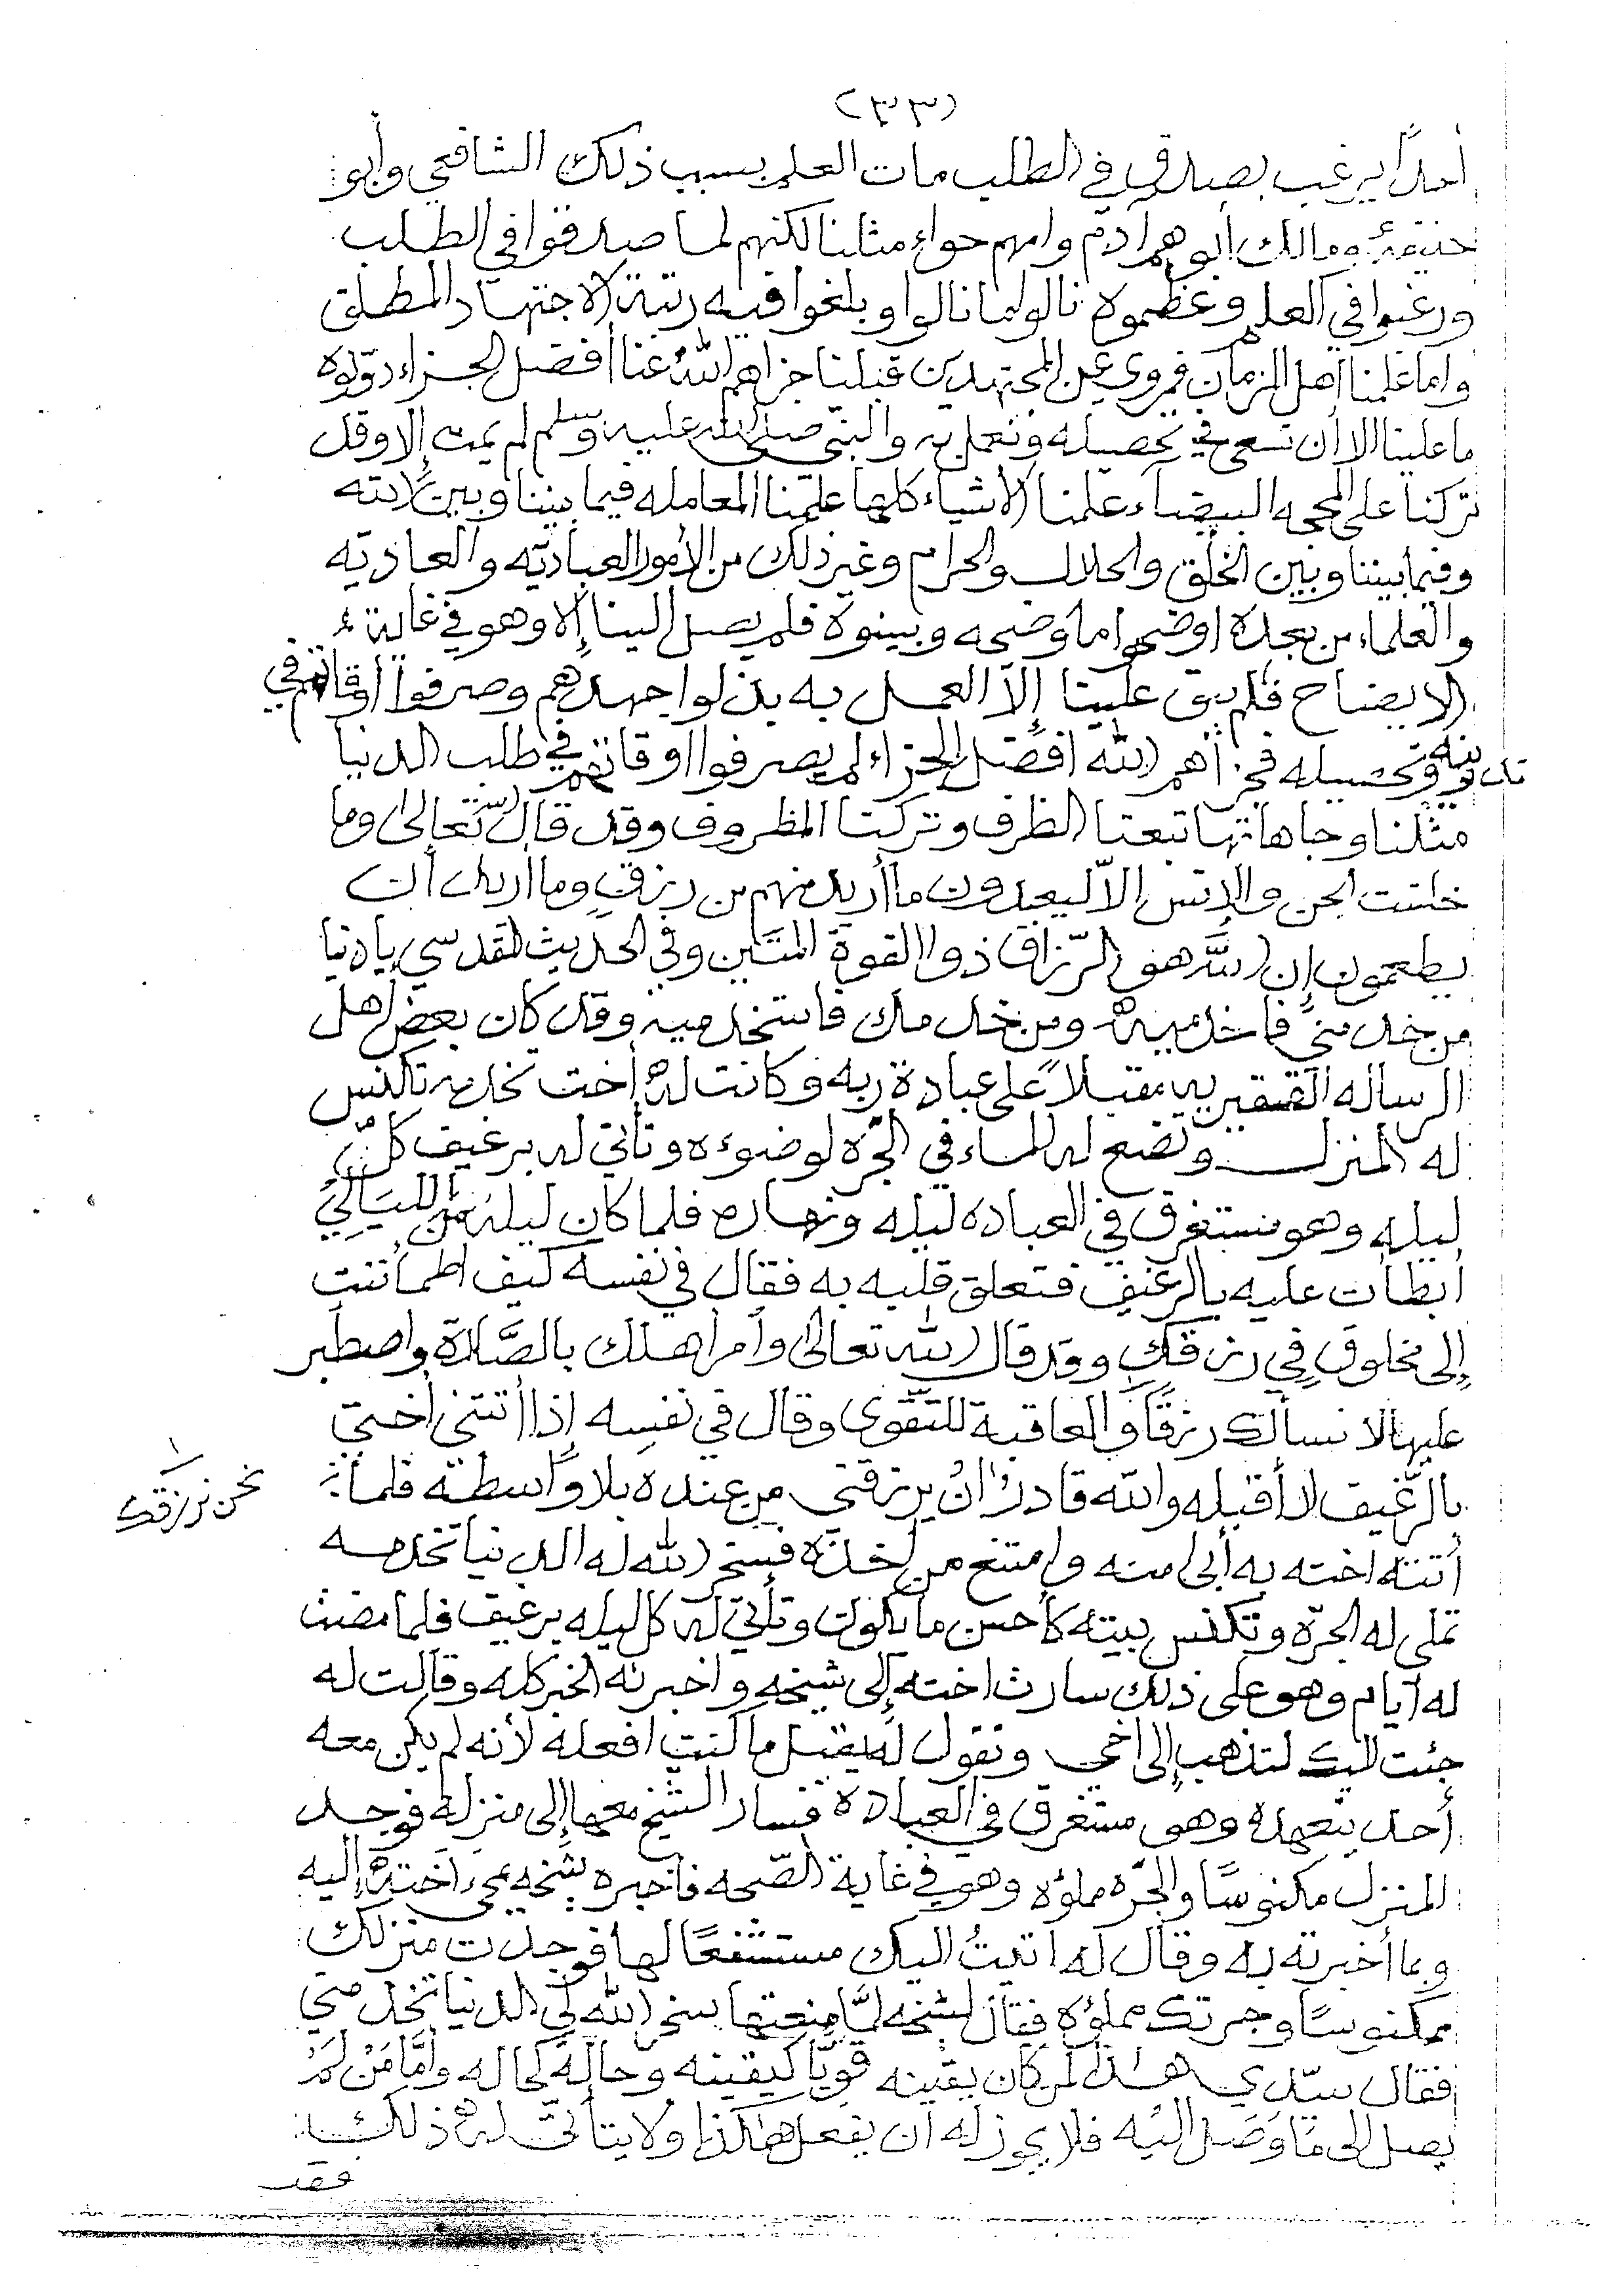 (٣٣)
أحداً يرغب بصدق في الطلب مات العلم بسبب ذلك الشافعي وأبو
حنيفة ومالك أبوهم آدم وامهم حواء مثلنا لكنهم لما صدقوا في الطلب
ورغبوا في العلم وعظموه نالوا ما نالوا وبلغوا فيه رتبة الاجتهاد المطلق
واما علمنا أهل الزمان فمروي عن المجتهدين قبلنا جزاهم الله عنا أفضل الجزاء دوّنوه
ما علينا الا أن نسعى في تحصيله ونعمل به والنبي صلى الله عليه وسلم لم يمت إلا وقد
تركنا على المحجه البيضاء علمنا الأشياء كلها علّمنا المعامله فيما بيننا وبين الله
وفيما بيننا وبين الخلق والحلال والحرام وغير ذلك من الأمور العباديّه والعاديّه
والعلماء من بعده اوضحوا ما وضحه وبينوه فلم يصل الينا إلا وهو في غاية
الايضاح فلم يبق علينا إلا العمل به بذلوا جهدهم وصرفوا أوقاتهم في
تدوينه وتحصيله فجزاهم الله افضل الجزاء لم يصرفوا اوقاتهم في طلب الدنيا
مثلنا وجاهاتها تبعنا الظرف وتركنا المظروف وقد قال الله تعالى وما
خلقت الجن والإنس الاّ ليعبدون ما أريد منهم من رزقٍ وما أريد أن
يطعمون إن الله هو الرّزاق ذوا القوة المتين وفي الحديث القدسي يا دنيا
من خدمني فاخدميه ومن خدمك فاستخدميه وقد كان بعض اهل
الرساله القشيريه مقبلاً على عبادة ربه وكانت له أخت تخدمه تكنس
له المنزل وتضع له الماء في الجرّه لوضوءه وتأتي له برغيف كلّ
ليله وهو مستغرق في العباده ليله ونهاره فلما كان ليلة من الليالي
أبطأت عليه بالرغيف فتعلق قلبه به فقال في نفسه كيف اطمأننت
إلى مخلوقٍ في رزقكِ وقد قال الله تعالى وأمر اهلك بالصَّلاة واصطبر
عليها لا نسألك رزقًا والعاقبة للتّقوى وقال في نفسِه إذا أتتني أختي
نحن نرزقك
بالرّغيف لا أقبله والله قادرٌ أن يرزقني من عنده بلا واسطه فلما
أتته اخته به أبى منه وامتنع من أخذه فسخر الله له الدنيا تخدمه
تملي له الجرّه وتكنس بيته كأحسن ما يكون وتأتي له كل ليله برغيف فلما مضت
له أيام وهو على ذلك سارت اخته إلى شيخه واخبرته الخبر كله وقالت له
جئت اليك لتذهب إلى اخي وتقول له يقبل ما كنت افعله لأنه لم يكن معه
أحد يتعهده وهو مستغرق في العباده فسار الشّيخ معها إلى منزله فوجد
المنزل مكنوسًا والجرّه مملؤه وهو في غاية الصّحه فأخبره شيخه بمجيء اخته إليه
وبما أخبرته به وقال له اتيتُ اليك مستشفعًا لها فوجدت منزلك
مكنوسًا وجرتك مملؤه فقال لشيخه لمَّا منعتها سخر الله لي الدنيا تخدمني
فقال سيّدي هذا لمن كان يقينه قويًّا كيقينه وحاله كحاله وأمَّا مَنْ لمْ
يصل إلى مَا وَصَل اليْه فلا يجوز له أن يفعل هكذا ولا يتأتىّ له ذلك
فقد